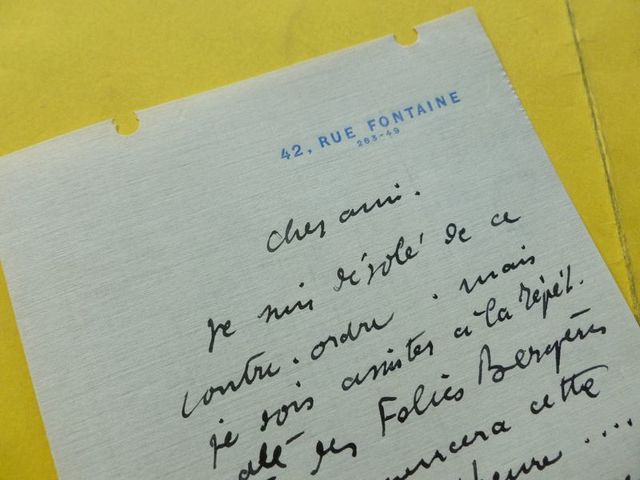 42, RUE FONTAINE
263-49
Cher ami.
Je suis désolé de ce
contre-ordre. mais
je dois assister à la répét.
des Folies Bergères
cette
heure....